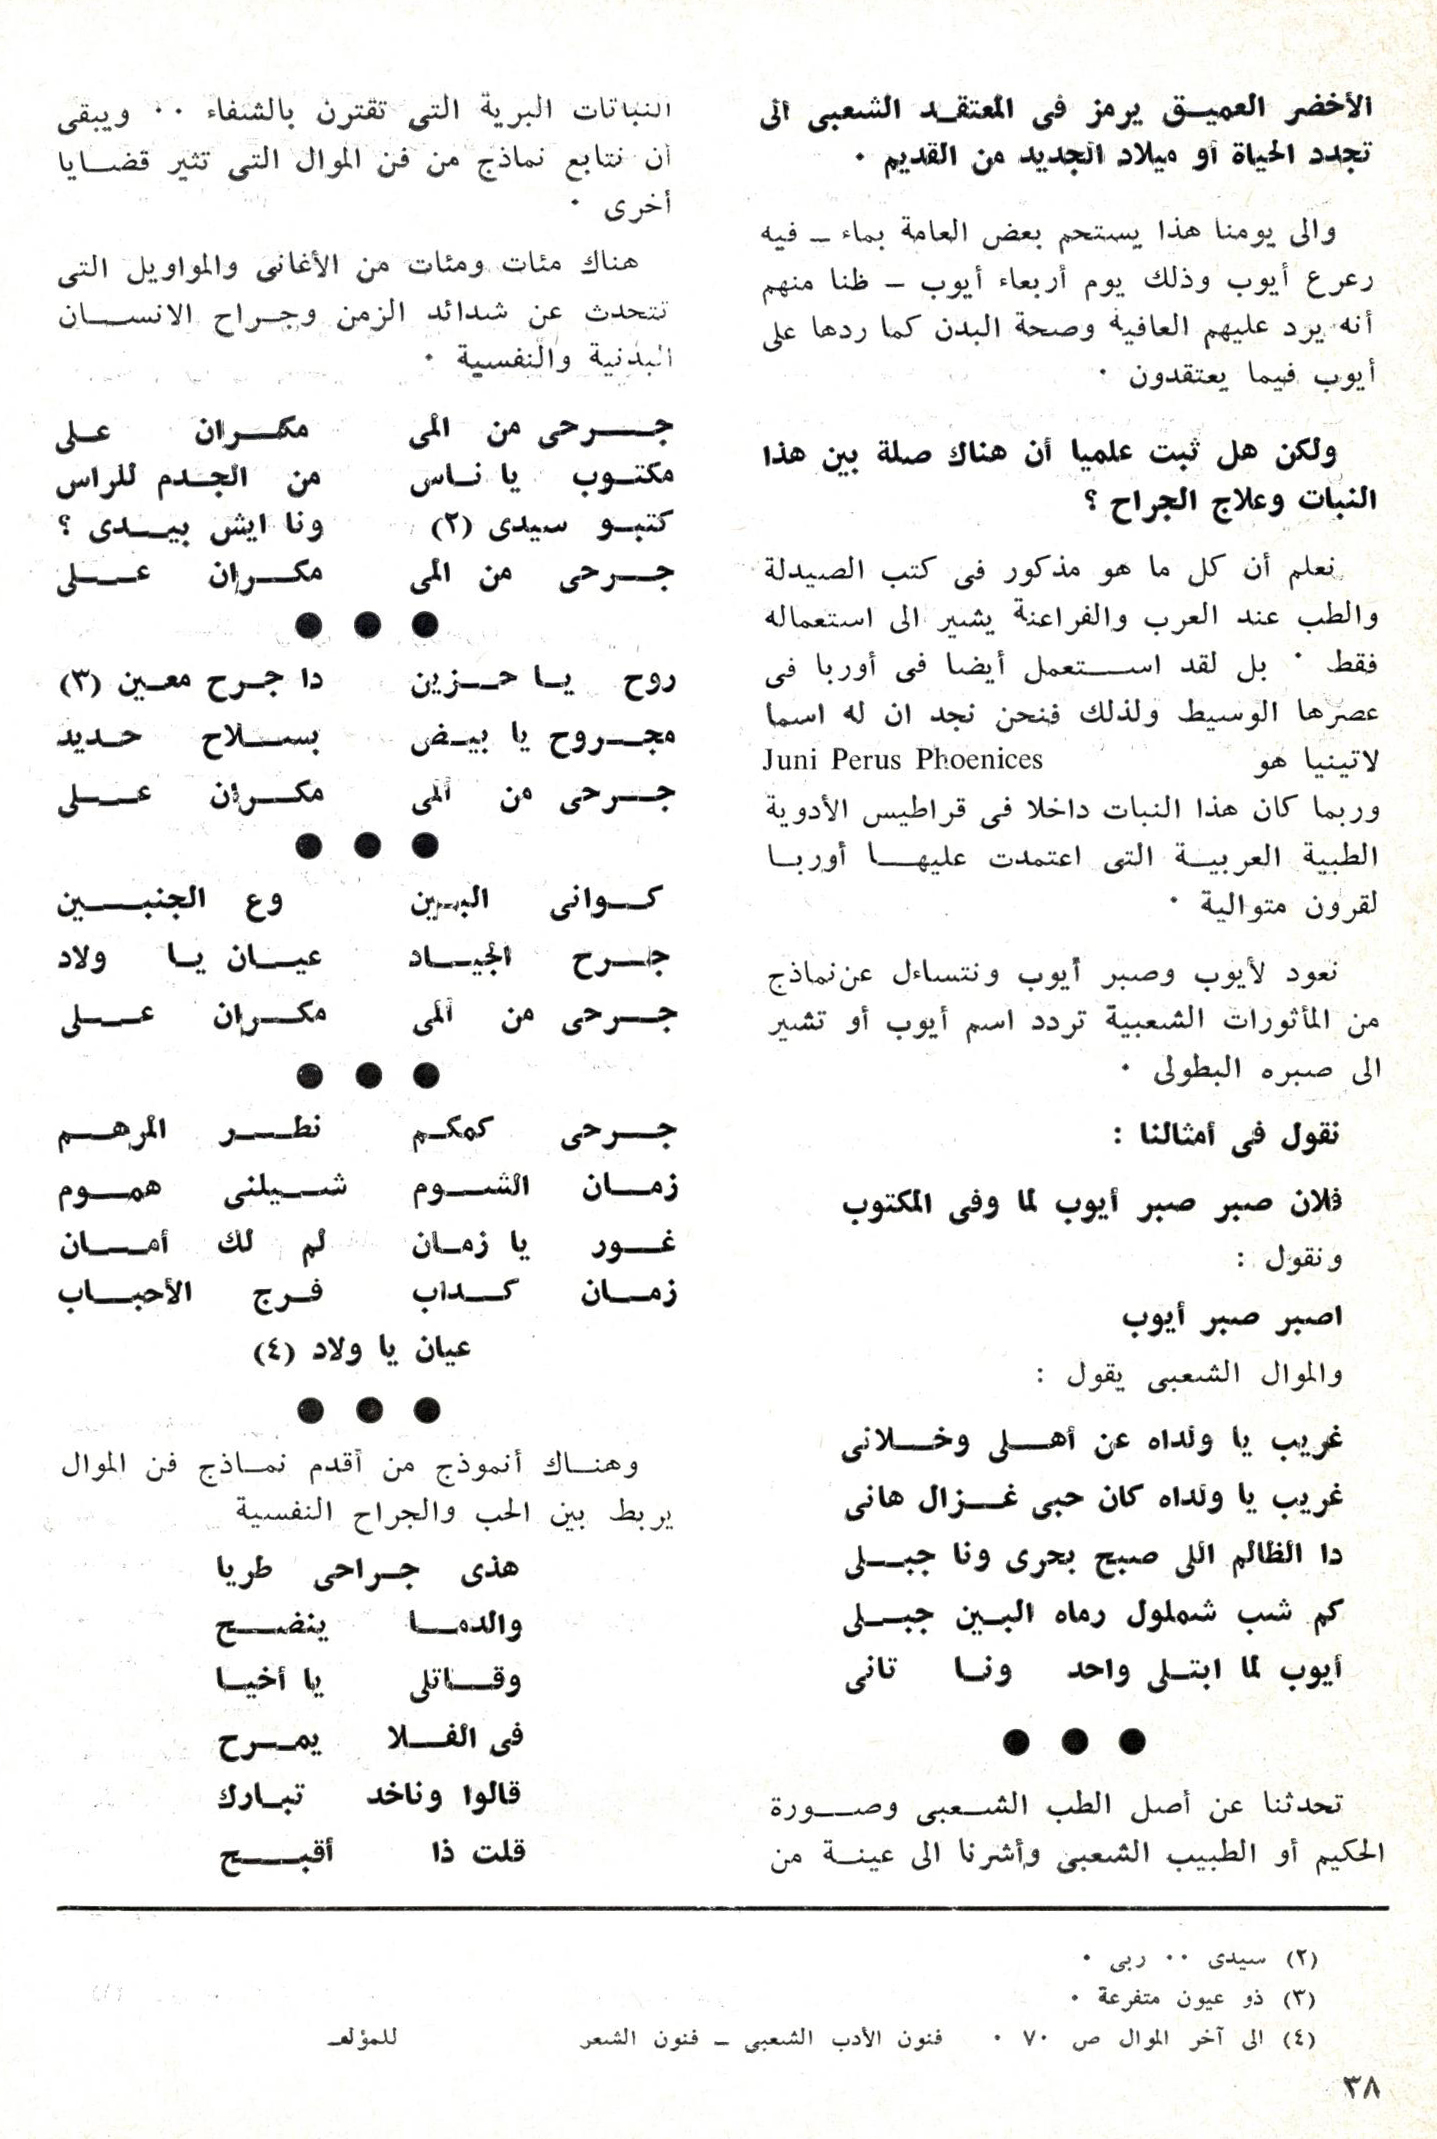 الأخضر العميق يرمز فى المعتقد الشعبى الى
تجدد الحياة أو ميلاد الجديد من القديم ٠
والى يومنا هذا يستحم بعض العامة بماء – فيه
رعرع أيوب وذلك يوم أربعاء أيوب – ظنا منهم
أنه يرد عليهم العافية وصحة البدن كما ردها على
أيوب فيما يعتقدون ٠
ولكن هل ثبت علميا أن هناك صلة بين هذا
النبات وعلاج الجراح ؟
نعلم أن كل ما هو مذكور فى كتب الصيدلة
والطب عند العرب والفراعنة يشير الى استعماله
فقط ٠ بل لقد استعمل أيضا فى أوربا فى
عصرها الوسيط ولذلك فنحن نجد ان له اسما
لاتينيا هو Juni Perus Phoenices
وربما كان هذا النبات داخلا فى قراطيس الأدوية
الطبية العربية التى اعتمدت عليها أوربا
لقرون متوالية ٠
نعود لأيوب وصبر أيوب ونتساءل عن نماذج
من المأثورات الشعبية تردد اسم أيوب أو تشير
الى صبره البطولى ٠
نقول فى أمثالنا :
فلان صبر صبر أيوب لما وفى المكتوب
ونقول :
اصبر صبر أيوب
والموال الشعبى يقول :
غريب يا ولداه عن أهلى وخلانى
غريب يا ولداه كان حبى غزال هانى
دا الظالم اللى صبح بحرى ونا جبلى
كم شب شملول رماه البين جبلى
أيوب لما ابتلى واحد ونا تانى
● ● ●
تحدثنا عن أصل الطب الشعبى وصورة
الحكيم أو الطبيب الشعبى وأشرنا الى عينة من
النباتات البرية التى تقترن بالشفاء ٠٠ ويبقى
أن نتابع نماذج من فن الموال التى تثير قضايا
أخرى ٠
هناك مئات ومئات من الأغانى والمواويل التى
تتحدث عن شدائد الزمن وجراح الانسان
البدنية والنفسية ٠
جرحى من المى مكران على
مكتوب يا ناس من الجدم للراس
كتبو سيدى (٢) ونا ايش بيدى ؟
جرحى من المى مكران على
● ● ●
روح يا حزين دا جرح معين (٣)
مجروح يا بيض بسلاح حديد
جرحى من المى مكران على
● ● ●
كوانى البين وع الجنبين
جرح الجياد عيان يا ولاد
جرحى من المى مكران على
● ● ●
جرحى كمكم نطر المرهم
زمان الشوم شيلنى هموم
غور يا زمان لم لك أمان
زمان كداب فرج الأحباب
عيان يا ولاد (٤)
● ● ●
وهناك أنموذج من أقدم نماذج فن الموال
يربط بين الحب والجراح النفسية
هذى جراحى طريا
والدما ينضح
وقاتلى يا أخيا
فى الفلا يمرح
قالوا وناخد تبارك
قلت ذا أقبح
(٢) سيدى ٠٠ ربى ٠
(٣) ذو عيون متفرعة ٠
(٤) الى آخر الموال ص ٧٠ ٠ فنون الأدب الشعبى – فنون الشعر للمؤلف
٣٨